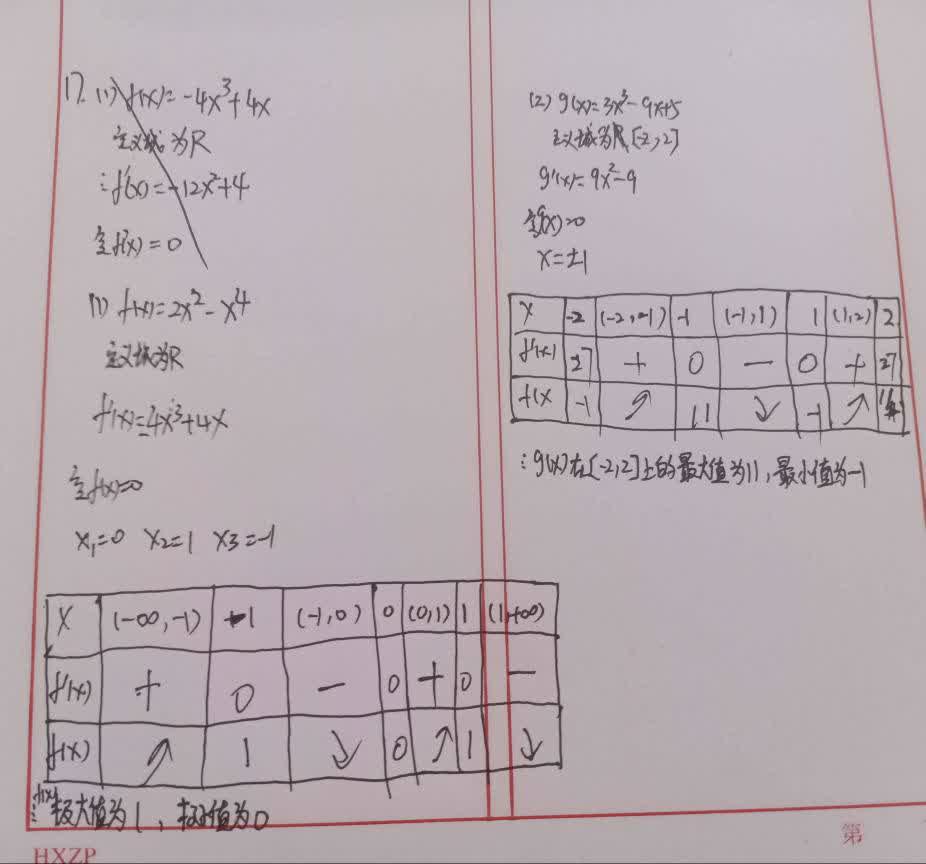 17. (1) f(x)=-4x³+4x
定义域为R
∴f'(x)=-12x²+4
令f'(x)=0
(1) f(x)=2x²-x⁴
定义域为R
f'(x)=-4x³+4x
令f'(x)=0
x₁=0 x₂=1 x₃=-1
x (-∞,-1) -1 (-1,0) 0 (0,1) 1 (1,+∞)
f'(x) + 0 - 0 + 0 -
f(x) ↗ 1 ↘ 0 ↗ 1 ↘
∴f(x)极大值为1,极小值为0
(2) g(x)=3x³-9x+5
定义域为R [-2,2]
g'(x)=9x²-9
令g'(x)=0
x=±1
x -2 (-2,-1) -1 (-1,1) 1 (1,2) 2
f'(x) 27 + 0 - 0 + 27
f(x -1 ↗ 11 ↘ -1 ↗
∴g(x)在[-2,2]上的最大值为11,最小值为-1
第
HXZP